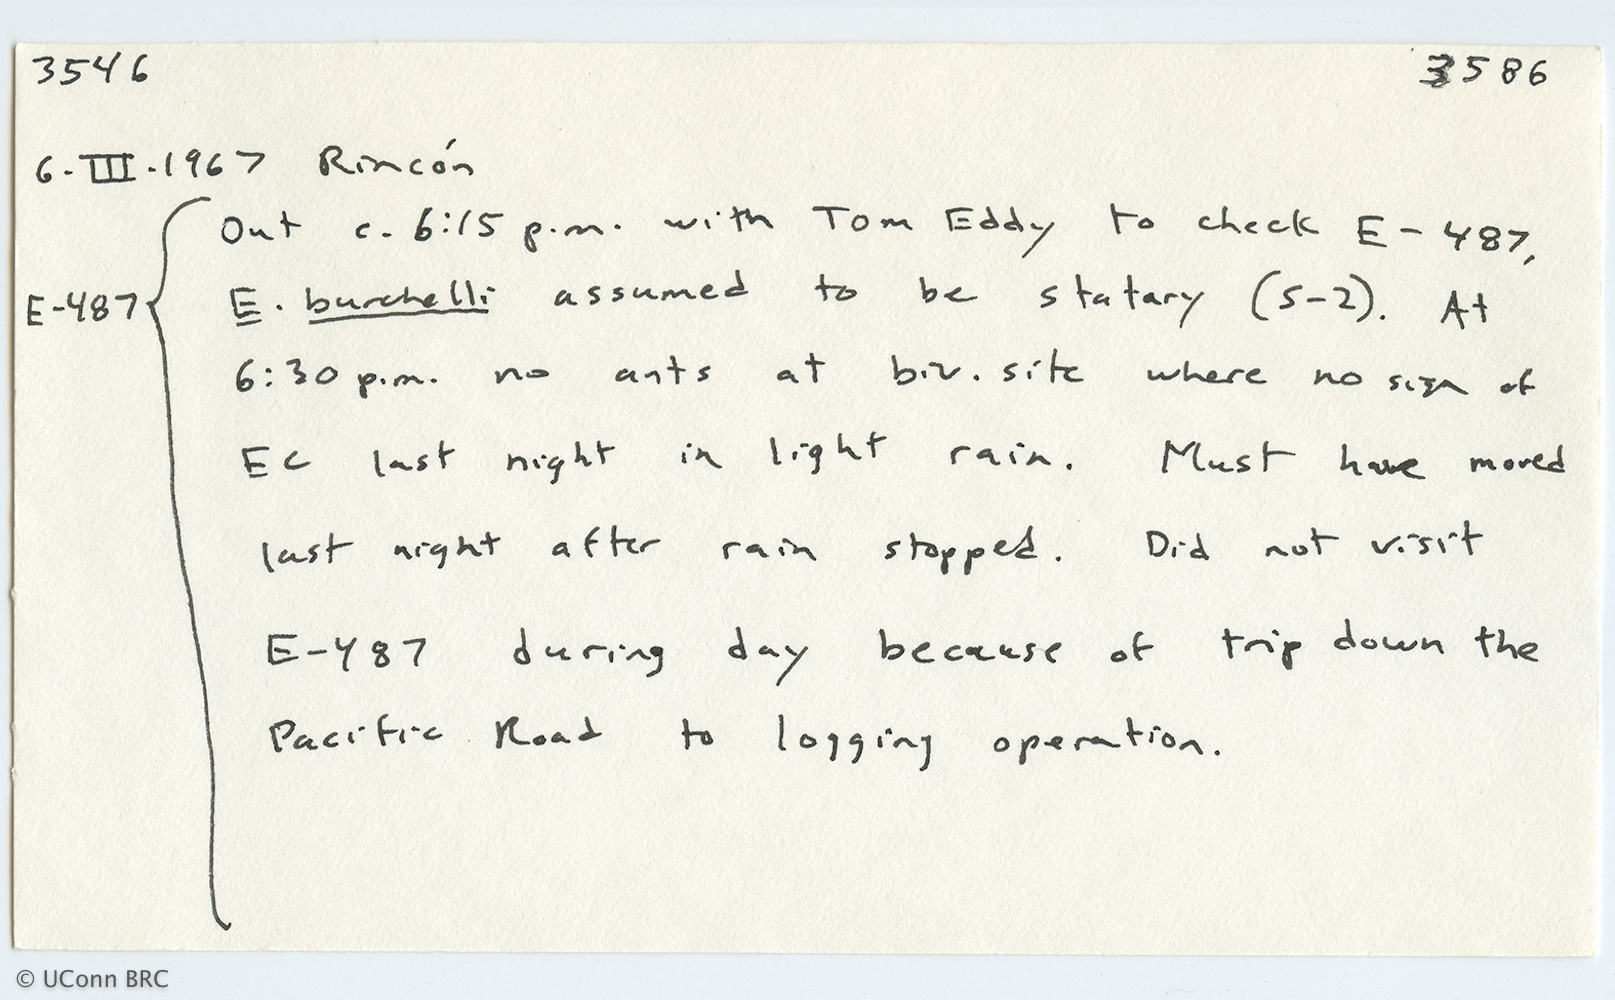 3546 3586
6.III.1967 Rincón
Out c. 6:15 p.m. with Tom Eddy to check E-487,
E-487 E. burchelli assumed to be statary (S-2). At
6:30 p.m. no ants at biv. site where no sign of
EC last night in light rain. Must have moved
last night after rain stopped. Did not visit
E-487 during day because of trip down the
Pacific Road to logging operation.
© UConn BRC